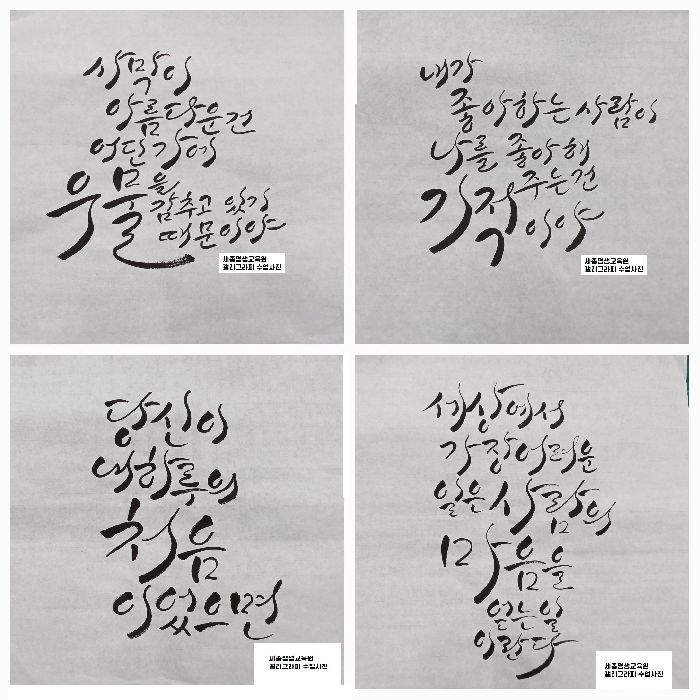 사막이
아름다운건
어딘가에
우물을
감추고 있기
때문이야
세종평생교육원
캘리그라피 수업사진
내가
좋아하는 사람이
나를 좋아해
주는건
기적이야
세종평생교육원
캘리그라피 수업사진
당신이
내하루의
처음
이었으면
세종평생교육원
캘리그라피 수업사진
세상에서
가장어려운
일은 사람의
마음을
얻는일
이란다
세종평생교육원
캘리그라피 수업사진